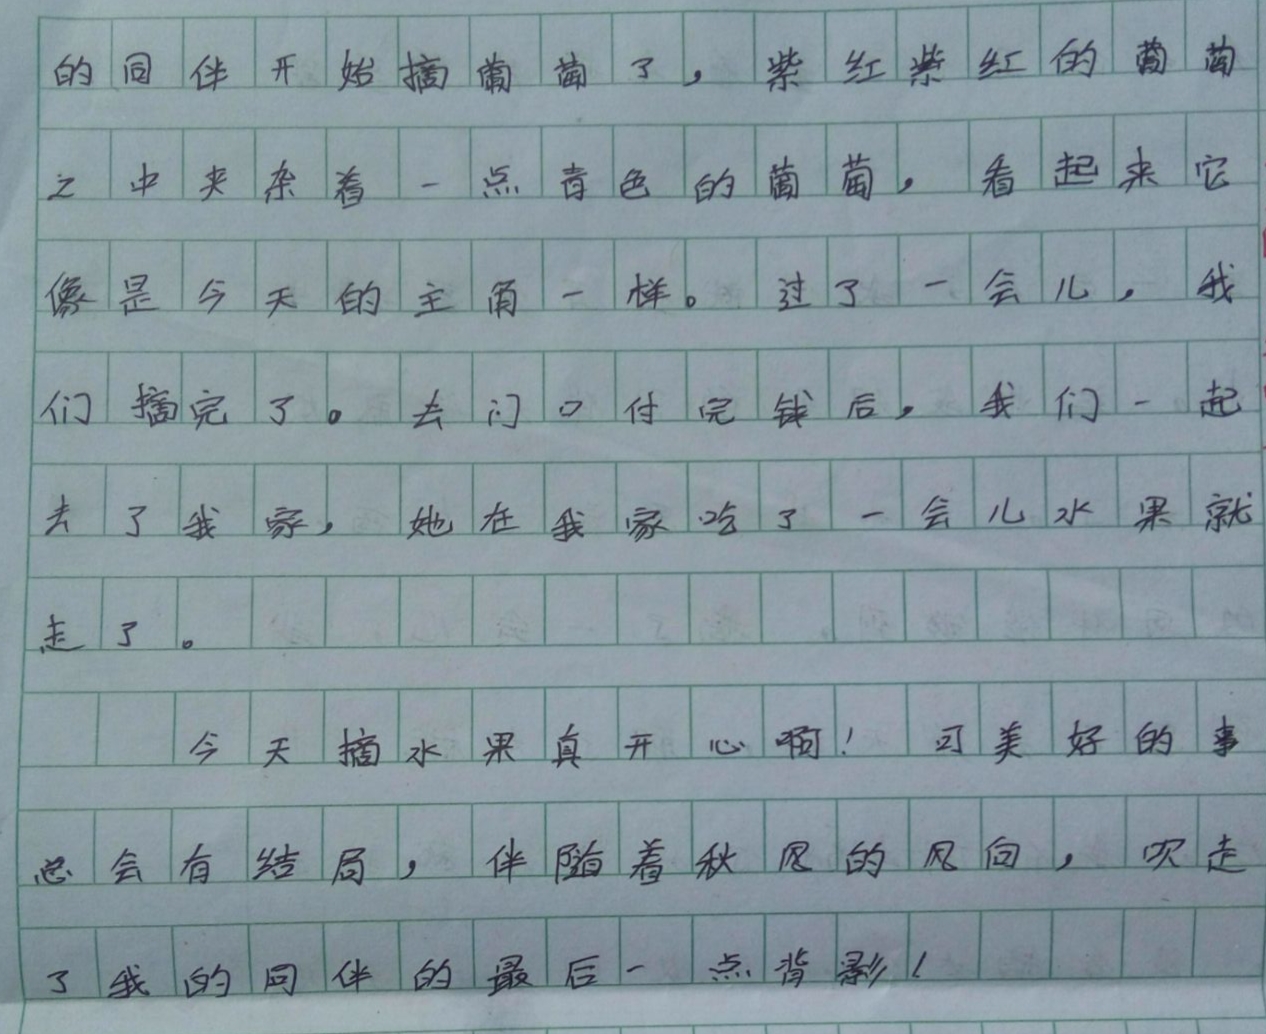 的同伴开始摘葡萄了，紫红紫红的葡萄
之中夹杂着一点青色的葡萄，看起来它
像是今天的主角一样。过了一会儿，我
们摘完了。去门口付完钱后，我们一起
去了我家，她在我家吃了一会儿水果就
走了。
今天摘水果真开心啊！可美好的事
总会有结局，伴随着秋风的风向，吹走
了我的同伴的最后一点背影！